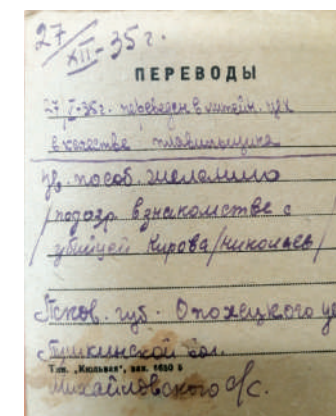 27/XII-35г.
ПЕРЕВОДЫ
27/I-35г. переведен в литейн. цех
в качестве плавильщика
ув. по соб. желанию
/подозр. в знакомстве с
убийцей Кирова/Николаев/
Псков. губ. Опочецкого уе
Пушкинской вол.
Тип. „Кюльвая", зак. 1650 5
Михайловского с/с.